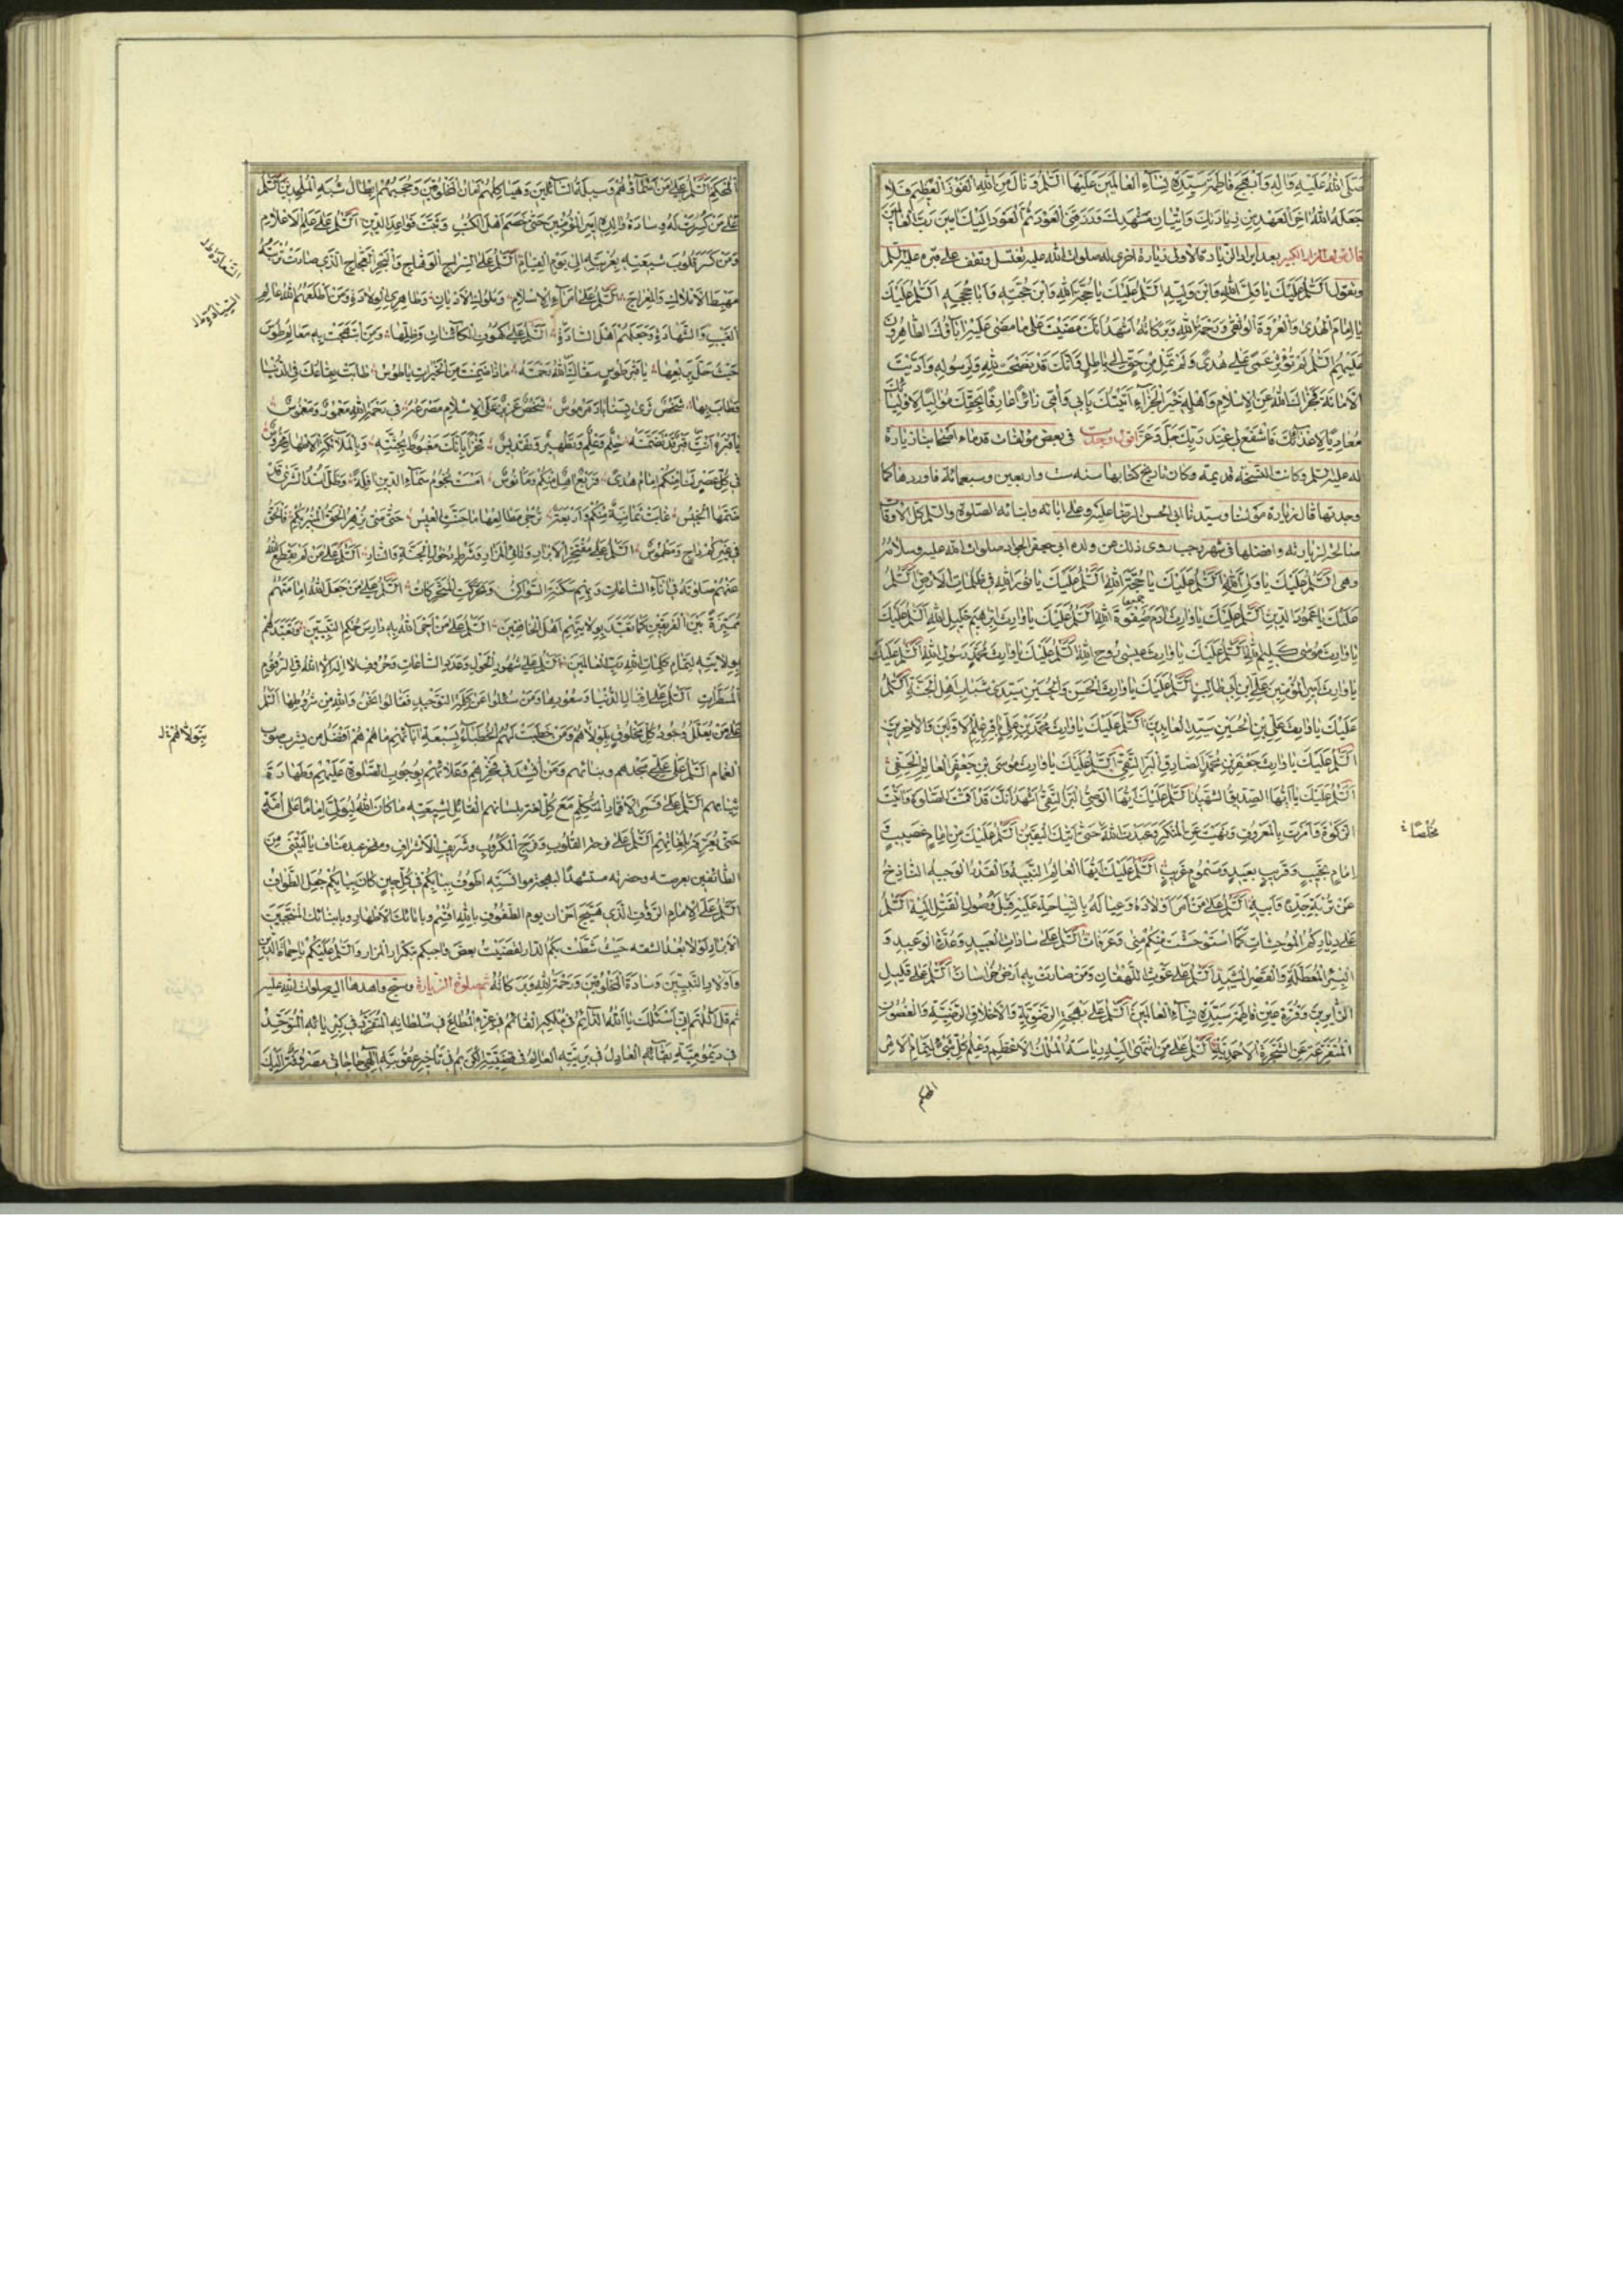 صَلَّى اللهُ عَلَيْهِ وَآلِهِ وَأَبْهَجَ فَاطِمَةَ سَيِّدَةَ نِسَاءِ الْعَالَمِينَ عَلَيْهَا السَّلَمُ وَنَالَ مِنَ اللهِ الْفَوْزَ الْعَظِيمَ فَلَا
جَعَلَهُ اللهُ اخِرَ الْعَهْدِ مِنْ زِيَارَتِكَ وَإِتْيَانِ مَشْهَدِكَ وَرَزَقَنِي الْعَوْدَ ثُمَّ الْعَوْدَ إِلَيْكَ امِينَ رَبَّ الْعَالَمِينَ
قال مؤلف المزار الكبير بعد ايراد الزيادة الاولى زيارة اخرى له صلوات الله عليه تغتسل وتقف على قبره عليه السلم
وتقول اَلسَّلَمُ عَلَيْكَ يَا وَلِيَّ اللهِ وَابْنَ وَلِيِّهِ اَلسَّلَمُ عَلَيْكَ يَا حُجَّةَ اللهِ وَابْنَ حُجَّتِهِ وَأَبَا حُجَجِهِ اَلسَّلَمُ عَلَيْكَ
يَا إِمَامَ الْهُدَى وَالْعُرْوَةَ الْوُثْقَى وَرَحْمَةُ اللهِ وَبَرَكَاتُهُ أَشْهَدُ أَنَّكَ مَضَيْتَ عَلَى مَا مَضَى عَلَيْهِ ابَاؤُكَ الطَّاهِرُونَ
عَلَيْهِمُ السَّلَمُ لَمْ تُؤْثِرْ عَمًى عَلَى هُدًى وَلَمْ تَمِلْ مِنْ حَقٍّ إِلَى بَاطِلٍ وَأَنَّكَ قَدْ نَصَحْتَ لِلَّهِ وَلِرَسُولِهِ وَأَدَّيْتَ
الْأَمَانَةَ فَجَزَاكَ اللهُ عَنِ الْإِسْلَامِ وَأَهْلِهِ خَيْرَ الْجَزَاءِ أَتَيْتُكَ بِأَبِي وَأُمِّي زَائِرًا عَارِفًا بِحَقِّكَ مُوَالِيًا لِأَوْلِيَائِكَ
مُعَادِيًا لِأَعْدَائِكَ فَاشْفَعْ لِي عِنْدَ رَبِّكَ جَلَّ وَعَزَّ اقول وجدت في بعض مؤلفات قدماء اصحابنا زيارة
له عليه السلم وكانت النسخة قديمة وكان تاريخ كتابها سنة ست واربعين وسبعمائة فاوردها كما
وجدتها قال زيارة مولانا وسيدنا ابي الحسن الرضا عليه وعلى ابائه وابنائه الصلوة والسلم كل الاوقات
صالحة لزيارته وافضلها في شهر رجب روى ذلك عن ولده ابي جعفر الجواد صلوات الله عليه وسلامه
وهي اَلسَّلَمُ عَلَيْكَ يَا وَلِيَّ اللهِ اَلسَّلَمُ عَلَيْكَ يَا حُجَّةَ اللهِ اَلسَّلَمُ عَلَيْكَ يَا نُورَ اللهِ فِي ظُلُمَاتِ الْأَرْضِ اَلسَّلَمُ
عَلَيْكَ يَا عَمُودَ الدِّينِ اَلسَّلَمُ عَلَيْكَ يَا وَارِثَ ادَمَ صَفْوَةِ اللهِ اَلسَّلَمُ عَلَيْكَ يَا وَارِثَ إِبْرَهِيمَ خَلِيلِ اللهِ اَلسَّلَمُ عَلَيْكَ
يَا وَارِثَ مُوسَى كَلِيمِ اللهِ اَلسَّلَمُ عَلَيْكَ يَا وَارِثَ عِيسَى رُوحِ اللهِ اَلسَّلَمُ عَلَيْكَ يَا وَارِثَ مُحَمَّدٍ رَسُولِ اللهِ اَلسَّلَمُ عَلَيْكَ
يَا وَارِثَ أَمِيرِ الْمُؤْمِنِينَ عَلِيِّ بْنِ أَبِي طَالِبٍ اَلسَّلَمُ عَلَيْكَ يَا وَارِثَ الْحَسَنِ وَالْحُسَيْنِ سَيِّدَيْ شَبَابِ أَهْلِ الْجَنَّةِ اَلسَّلَمُ
عَلَيْكَ يَا وَارِثَ عَلِيِّ بْنِ الْحُسَيْنِ سَيِّدِ الْعَابِدِينَ اَلسَّلَمُ عَلَيْكَ يَا وَارِثَ مُحَمَّدِ بْنِ عَلِيٍّ بَاقِرِ عِلْمِ الْأَوَّلِينَ وَالْاخِرِينَ
اَلسَّلَمُ عَلَيْكَ يَا وَارِثَ جَعْفَرِ بْنِ مُحَمَّدٍ الصَّادِقِ الْبَرِّ التَّقِيِّ اَلسَّلَمُ عَلَيْكَ يَا وَارِثَ مُوسَى بْنِ جَعْفَرٍ الْعَالِمِ الْحَفِيِّ
اَلسَّلَمُ عَلَيْكَ يَا أَيُّهَا الصِّدِّيقُ الشَّهِيدُ اَلسَّلَمُ عَلَيْكَ أَيُّهَا الْوَصِيُّ الْبَرُّ التَّقِيُّ أَشْهَدُ أَنَّكَ قَدْ أَقَمْتَ الصَّلَوةَ وَاتَيْتَ
الزَّكَوةَ وَأَمَرْتَ بِالْمَعْرُوفِ وَنَهَيْتَ عَنِ الْمُنْكَرِ وَعَبَدْتَ اللهَ حَتَّى أَتَيكَ الْيَقِينُ اَلسَّلَمُ عَلَيْكَ مِنْ إِمَامٍ عَصِيبٍ وَ
إِمَامٍ نَجِيبٍ وَقَرِيبٍ بَعِيدٍ وَمَسْمُومٍ غَرِيبٍ اَلسَّلَمُ عَلَيْكَ أَيُّهَا الْعَالِمُ النَّبِيهُ وَالْقَدْرُ الْوَجِيهُ النَّازِحُ
عَنْ تُرْبَةِ جَدِّهِ وَأَبِيهِ اَلسَّلَمُ عَلَى مَنْ أَمَرَ أَوْلَادَهُ وَعِيَالَهُ بِالنِّيَاحَةِ عَلَيْهِ قَبْلَ وُصُولِ الْقَتْلِ إِلَيْهِ اَلسَّلَمُ
عَلَى دِيَارِكُمُ الْمُوحِشَاتِ كَمَا اسْتَوْحَشَتْ مِنْكُمْ مِنًى وَعَرَفَاتُ اَلسَّلَمُ عَلَى سَادَاتِ الْعَبِيدِ وَعُدَّةِ الْوَعِيدِ وَ
الْبِئْرِ الْمُعَطَّلَةِ وَالْقَصْرِ الْمَشِيدِ اَلسَّلَمُ عَلَى غَوْثِ اللَّهْفَانِ وَمَنْ صَارَتْ بِهِ أَرْضُ خُرَاسَانَ اَلسَّلَمُ عَلَى قَلِيلِ
الزَّائِرِينَ وَقُرَّةِ عَيْنِ فَاطِمَةَ سَيِّدَةِ نِسَاءِ الْعَالَمِينَ اَلسَّلَمُ عَلَى الْبَهْجَةِ الرَّضَوِيَّةِ وَالْأَخْلَاقِ الرَّضِيَّةِ وَالْغُصُونِ
الْمُتَفَرِّعَةِ عَنِ الشَّجَرَةِ الْأَحْمَدِيَّةِ اَلسَّلَمُ عَلَى مَنِ انْتَهَى إِلَيْهِ رِيَاسَةُ الْمُلْكِ الْأَعْظَمِ وَعِلْمُ كُلِّ شَيْءٍ لِتَمَامِ الْأَمْرِ
المحكم
الْمُحْكَمِ اَلسَّلَمُ عَلَى مَنْ أَسْمَاؤُهُمْ وَسِيلَةُ السَّائِلِينَ وَهَيَاكِلُهُمْ أَمَانُ الْمَخْلُوقِينَ وَحُجَجُهُمْ إِبْطَالُ شُبَهِ الْمُلْحِدِينَ اَلسَّلَمُ
عَلَى مَنْ كُسِرَتْ لَهُ وِسَادَةُ وَالِدِهِ أَمِيرِ الْمُؤْمِنِينَ حَتَّى خَصَمَ أَهْلَ الْكُتُبِ وَثَبَّتَ قَوَاعِدَ الدِّينِ اَلسَّلَمُ عَلَى عَلَمِ الْأَعْلَامِ
وَمَنْ كَسَرَ قُلُوبَ شِيعَتِهِ بِغُرْبَتِهِ إِلَى يَوْمِ الْقِيَامِ اَلسَّلَمُ عَلَى السِّرَاجِ الْوَهَّاجِ وَالْبَحْرِ الْعَجَّاجِ الَّذِي صَارَتْ تُرْبَتُهُ
مَهْبِطَ الْأَمْلَاكِ وَالْمِعْرَاجِ اَلسَّلَمُ عَلَى أُمَرَاءِ الْإِسْلَامِ وَمُلُوكِ الْأَدْيَانِ وَطَاهِرِي الْوِلَادَةِ وَمَنْ أَطْلَعَهُمُ اللهُ عَلَى عِلْمِ
الْغَيْبِ وَالشَّهَادَةِ وَجَعَلَهُمْ أَهْلَ السَّادَةِ اَلسَّلَمُ عَلَى كُهُوفِ الْكَائِنَاتِ وَظِلِّهَا وَمَنِ ابْتَهَجَتْ بِهِ مَعَالِمُ طُوسَ
حَيْثُ حَلَّ بِرَبْعِهَا يَا قَبْرَ طُوسٍ سَقَاكَ اللهُ رَحْمَتَهُ مَاذَا ضَمِنْتَ مِنَ الْخَيْرَاتِ يَا طُوسُ طَابَتْ بِقَاعُكَ فِي الدُّنْيَا
وَطَابَ بِهَا شَخْصٌ ثَوَى بِسَنَابَادَ مَرْمُوسٌ شَخْصٌ عَزِيزٌ عَلَى الْإِسْلَامِ مَصْرَعُهُ فِي رَحْمَةِ اللهِ مَغْمُورٌ وَمَغْمُوسٌ
يَا قَبْرَهُ أَنْتَ قَبْرٌ قَدْ تَضَمَّنَهُ حِلْمٌ وَعِلْمٌ وَتَطْهِيرٌ وَتَقْدِيسٌ فَخْرًا بِأَنَّكَ مَغْبُوطٌ بِجُثَّتِهِ وَبِالْمَلَائِكَةِ الْأَطْهَارِ مَحْرُوسٌ
فِي كُلِّ عَصْرٍ لَنَا مِنْكُمْ إِمَامُ هُدًى فَرَبْعُهُ اهِلٌ مِنْكُمْ وَمَأْنُوسٌ أَمْسَتْ نُجُومُ سَمَاءِ الدِّينِ افِلَةً وَظَلَّ أُسْدُ الشَّرَى قَدْ
ضَمَّهَا الْخِيسُ غَابَتْ ثَمَانِيَةٌ مِنْكُمْ وَأَرْبَعَةٌ تُرْجَى مَطَالِعُهَا مَا حَنَّتِ الْعِيسُ حَتَّى مَتَى يَزْهَرُ الْحَقُّ الْمُنِيرُ بِكُمْ فَالْحَقُّ
فِي غَيْرِكُمْ دَاجٍ وَمَطْمُوسٌ اَلسَّلَمُ عَلَى مُفْتَخَرِ الْأَبْرَارِ وَنَائِي الْمَزَارِ وَشَرْطِ دُخُولِ الْجَنَّةِ وَالنَّارِ اَلسَّلَمُ عَلَى مَنْ لَمْ يَقْطَعِ اللهُ
عَنْهُمْ صَلَوتَهُ فِي انَاءِ السَّاعَاتِ وَبِهِمْ سَكَنَتِ السَّوَاكِنُ وَتَحَرَّكَتِ الْمُتَحَرِّكَاتُ اَلسَّلَمُ عَلَى مَنْ جَعَلَ اللهُ إِمَامَتَهُمْ
مُمَيِّزَةً بَيْنَ الْفَرِيقَيْنِ كَمَا تَعَبَّدَ بِوِلَايَتِهِمْ أَهْلَ الْخَافِقَيْنِ اَلسَّلَمُ عَلَى مَنْ أَحْيَى اللهُ بِهِ دَارِسَ حُكْمِ النَّبِيِّينَ وَتَعَبَّدَهُمْ
بِوِلَايَتِهِ لِتَمَامِ كَلِمَاتِ اللهِ رَبِّ الْعَالَمِينَ اَلسَّلَمُ عَلَى شُهُورِ الْحَوْلِ وَعَدَدِ السَّاعَاتِ وَحُرُوفِ لا اله الا الله فِي الرُّقُومِ
الْمُسَطَّرَاتِ اَلسَّلَمُ عَلَى إِقْبَالِ الدُّنْيَا وَسُعُودِهَا وَمَنْ سُئِلُوا عَنْ كَلِمَةِ التَّوْحِيدِ فَقَالُوا نَحْنُ وَاللهِ مِنْ شُرُوطِهَا اَلسَّلَمُ
عَلَى مَنْ يُعَلَّلُ وُجُودُ كُلِّ مَخْلُوقٍ بِلَوْلَاهُمْ وَمَنْ خَطَبَتْ لَهُمُ الْخُطَبَاءُ بِسَبْعَةِ ابَائِهِمْ مَا هُمْ هُمْ أَفْضَلُ مَنْ يَشْرَبُ صَوْبَ
الْغَمَامِ اَلسَّلَمُ عَلَى عَلِيٍّ مَجْدُهُمْ وَبِنَائُهُمْ وَمَنْ أُنْشِدَ فِي فَخْرِهِمْ وَعَلَائِهِمْ بِوُجُوبِ الصَّلَوةِ عَلَيْهِمْ وَطَهَارَةِ
ثِيَابِهِمْ اَلسَّلَمُ عَلَى قَمَرِ الْأَقْمَارِ الْمُتَكَلِّمِ مَعَ كُلِّ لُغَةٍ بِلِسَانِهِمْ الْقَائِلِ لِشِيعَتِهِ مَا كَانَ اللهُ لِيُوَلِّيَ إِمَامًا عَلَى أُمَّةٍ
حَتَّى يُعَرِّفَهُ بِلُغَاتِهِمْ اَلسَّلَمُ عَلَى فَرْحَةِ الْقُلُوبِ وَفَرَجِ الْمَكْرُوبِ وَشَرِيفِ الْأَشْرَافِ وَمَفْخَرِ عَبْدِ مَنَافٍ يَا لَيْتَنِي مِنَ
الطَّائِفِينَ بِعَرْصَتِهِ وَحَضْرَتِهِ مُسْتَشْهِدًا لِبَهْجَةِ مُؤَانَسَتِهِ أَطُوفُ بِبَابِكُمْ فِي كُلِّ حِينٍ كَأَنَّ بِبَابِكُمْ جُعِلَ الطَّوَافُ
اَلسَّلَمُ عَلَى الْإِمَامِ الرَّؤُوفِ الَّذِي هَيَّجَ أَحْزَانَ يَوْمِ الطُّفُوفِ بِاللهِ أُقْسِمُ وَبِابَائِكَ الْأَطْهَارِ وَبِأَبْنَائِكَ الْمُنْتَجَبِينَ
الْأَبْرَارِ لَوْلَا بُعْدُ الشُّقَّةِ حَيْثُ شَطَّتْ بِكُمُ الدَّارُ لَقَضَيْتُ بَعْضَ وَاجِبِكُمْ بِتَكْرَارِ الْمَزَارِ وَالسَّلَمُ عَلَيْكُمْ يَا حُمَاةَ الدِّينِ
وَأَوْلَادَ النَّبِيِّينَ وَسَادَةَ الْمَخْلُوقِينَ وَرَحْمَةُ اللهِ وَبَرَكَاتُهُ ثم صل صلوة الزيارة وسبح واهدها اليه صلوات الله عليه
ثم قل اَللَّهُمَّ إِنِّي أَسْئَلُكَ يَا اَللهُ الدَّائِمُ فِي مُلْكِهِ الْقَائِمُ فِي عِزِّهِ الْمُطَاعُ فِي سُلْطَانِهِ الْمُتَفَرِّدُ فِي كِبْرِيَائِهِ الْمُتَوَحِّدُ
فِي دَيْمُومِيَّةِ بَقَائِهِ الْعَادِلُ فِي بَرِيَّتِهِ الْعَالِمُ فِي قَضِيَّتِهِ الْكَرِيمُ فِي تَأْخِيرِ عُقُوبَتِهِ إِلَهِي حَاجَاتِي مَصْرُوفَةٌ إِلَيْكَ